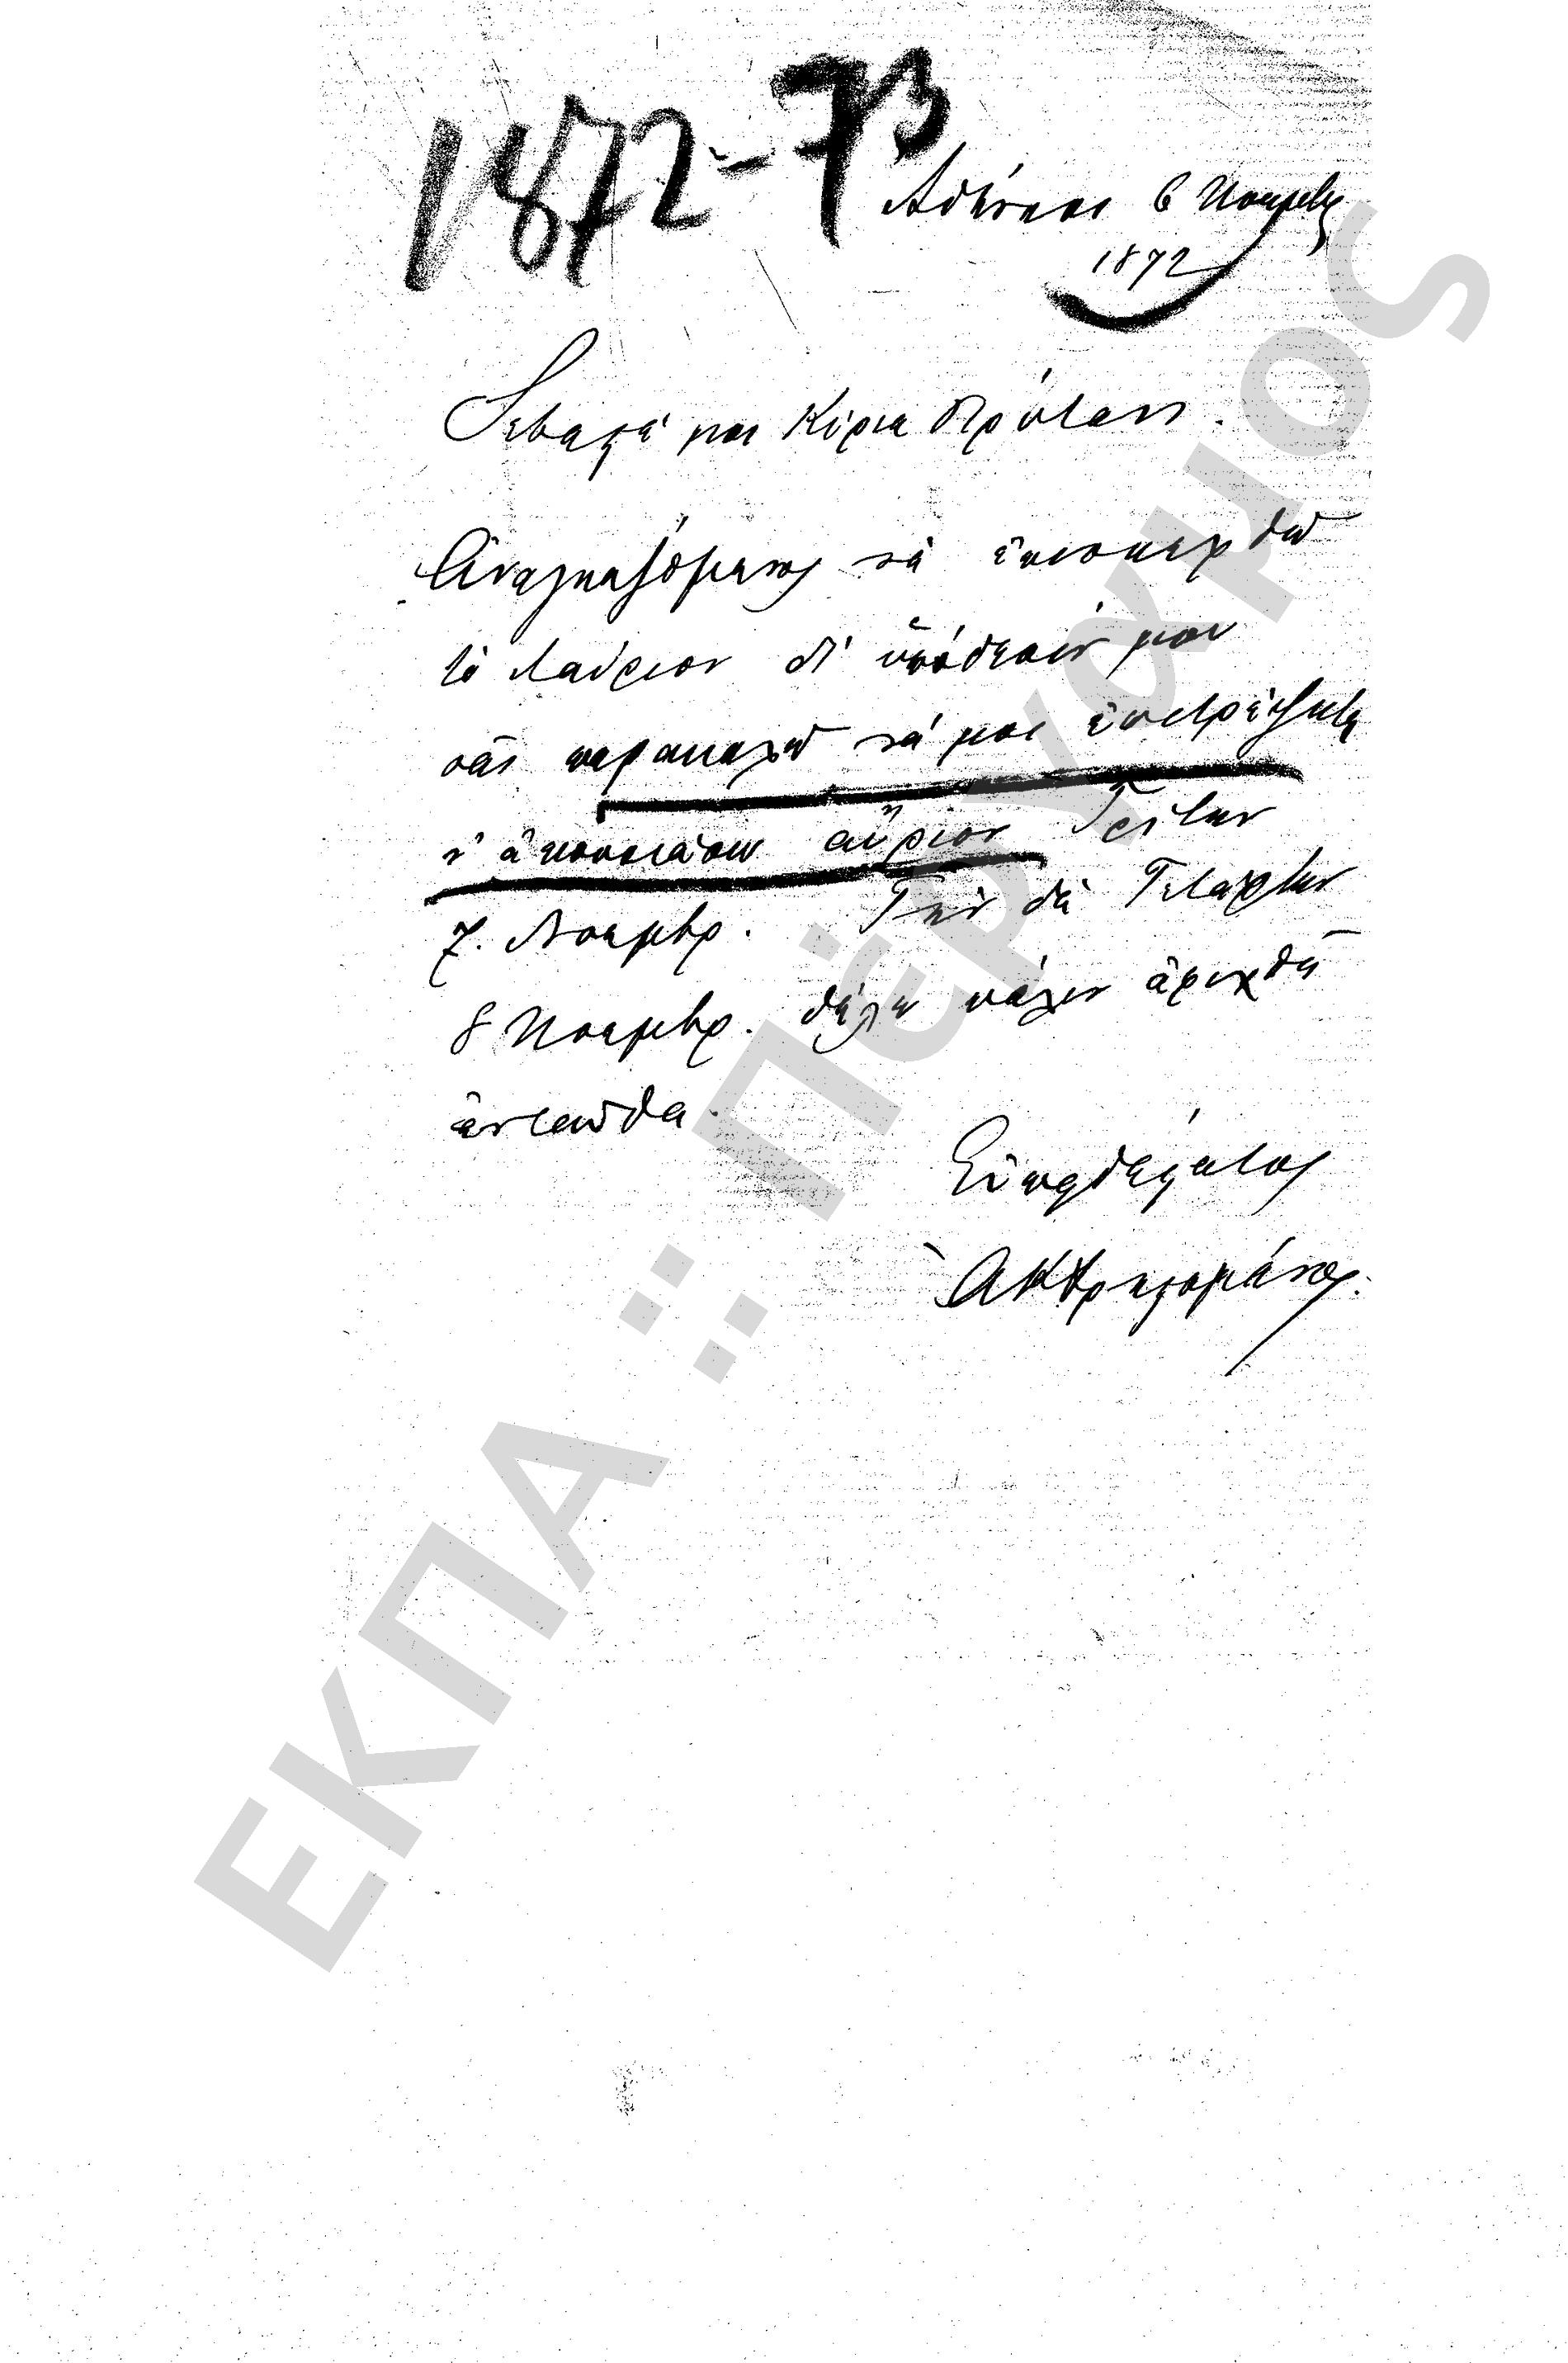 1872-73
Ἀθήνησι 6 Νοεμβρ
1872
Σεβαστέ μοι Κύριε Πρύτανι.
Ἀναγκαζόμενος νὰ ἐπισκεφθῶ
τὸ Λαύριον δι' ὑπόθεσίν μου
σᾶς παρακαλῶ νά μοι ἐπιτρέψητε
ν' ἀπουσιάσω αὔριον Τρίτην
7. Νοεμβρ. Τὴν δὲ Τετάρτην
8 Νοεμβρ. θέλω πάλιν ἀφιχθῆ
ἐνταῦθα.
Εὐπειθέστατος
ΑΚΧρηστομάνος.
ΕΚΠΑ :: Πέργαμος